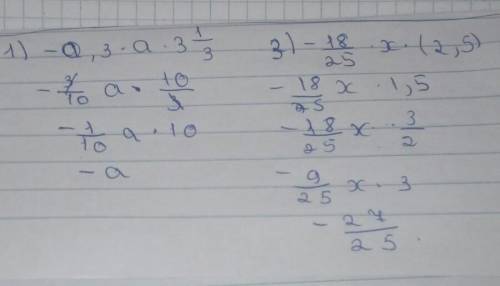 1) -0,3 · a · 3 1/3
-3/10 a · 10/3
-1/10 a · 10
-a
3) -18/25 · x · (2,5)
-18/25 x · 1,5
-18/25 x · 3/2
-9/25 x · 3
-27/25